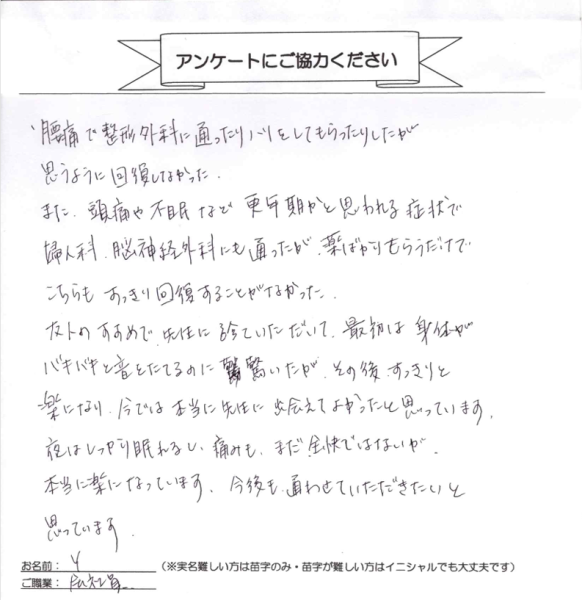 アンケートにご協力ください
腰痛で整形外科に通ったりハリをしてもらったりしたが
思うように回復しなかった.
また、頭痛や不眠など更年期かと思われる症状で
婦人科、脳神経外科にも通ったが、薬ばかりもらうだけで
こちらもすっきり回復することがなかった.
友人のすすめで、先生に診ていただいて、最初は身体が
バキバキと音をたてるのに驚いたが、その後、すっきりと
楽になり、今では本当に先生に出会えてよかったと思っています.
夜はしっかり眠れるし、痛みも、まだ全快ではないが、
本当に楽になっています、今後も通わせていただきたいと
思っています.
お名前： Y （※実名難しい方は苗字のみ・苗字が難しい方はイニシャルでも大丈夫です）
ご職業： 会社員